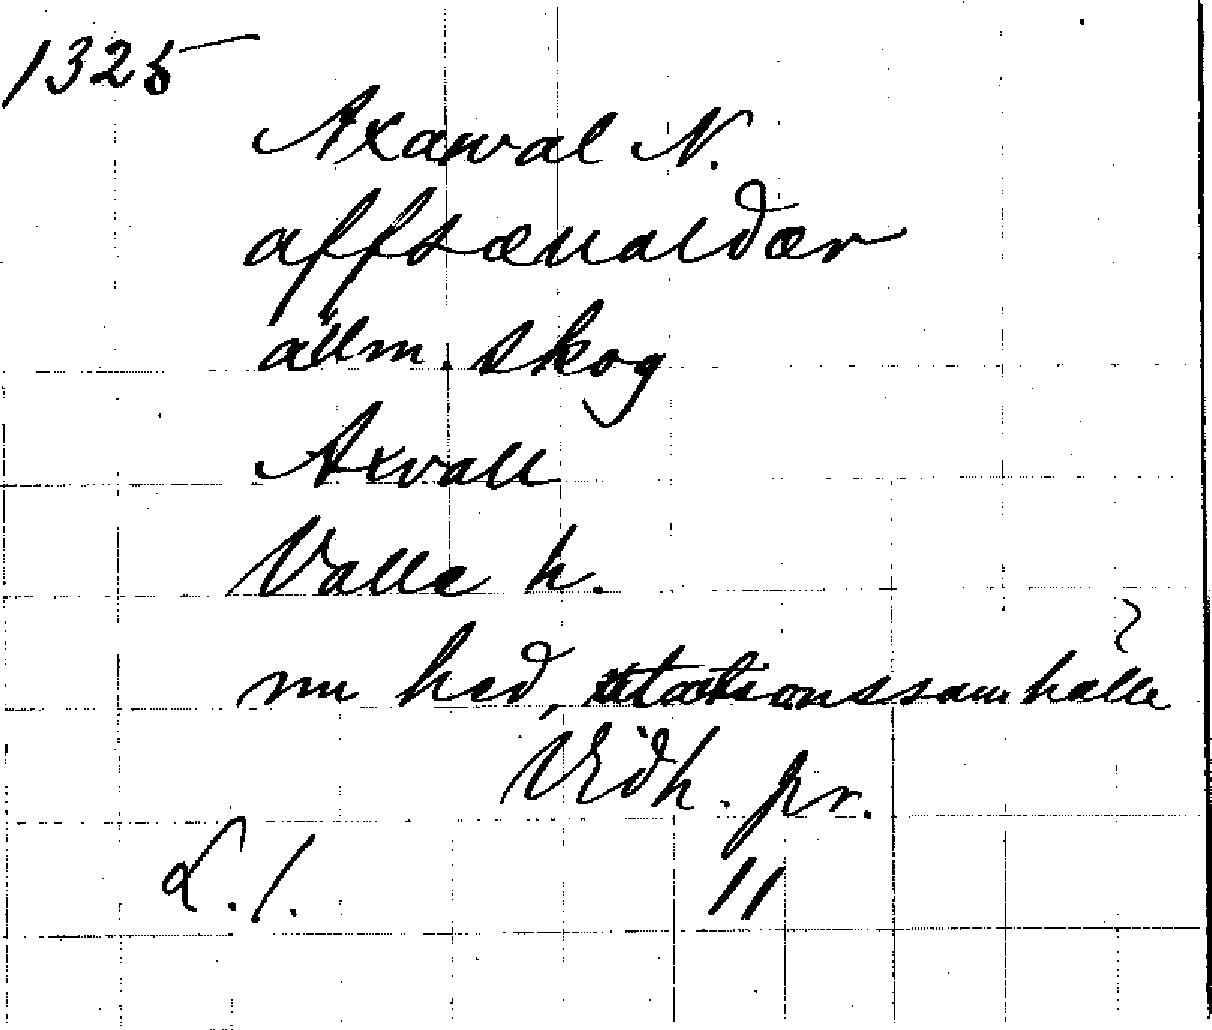 1325
Axawal N.
affsænaldær
allm. skog
Axvall
Valla h.
nu hed, stationssamhälle
Vidh. pr.
L. 1. 11